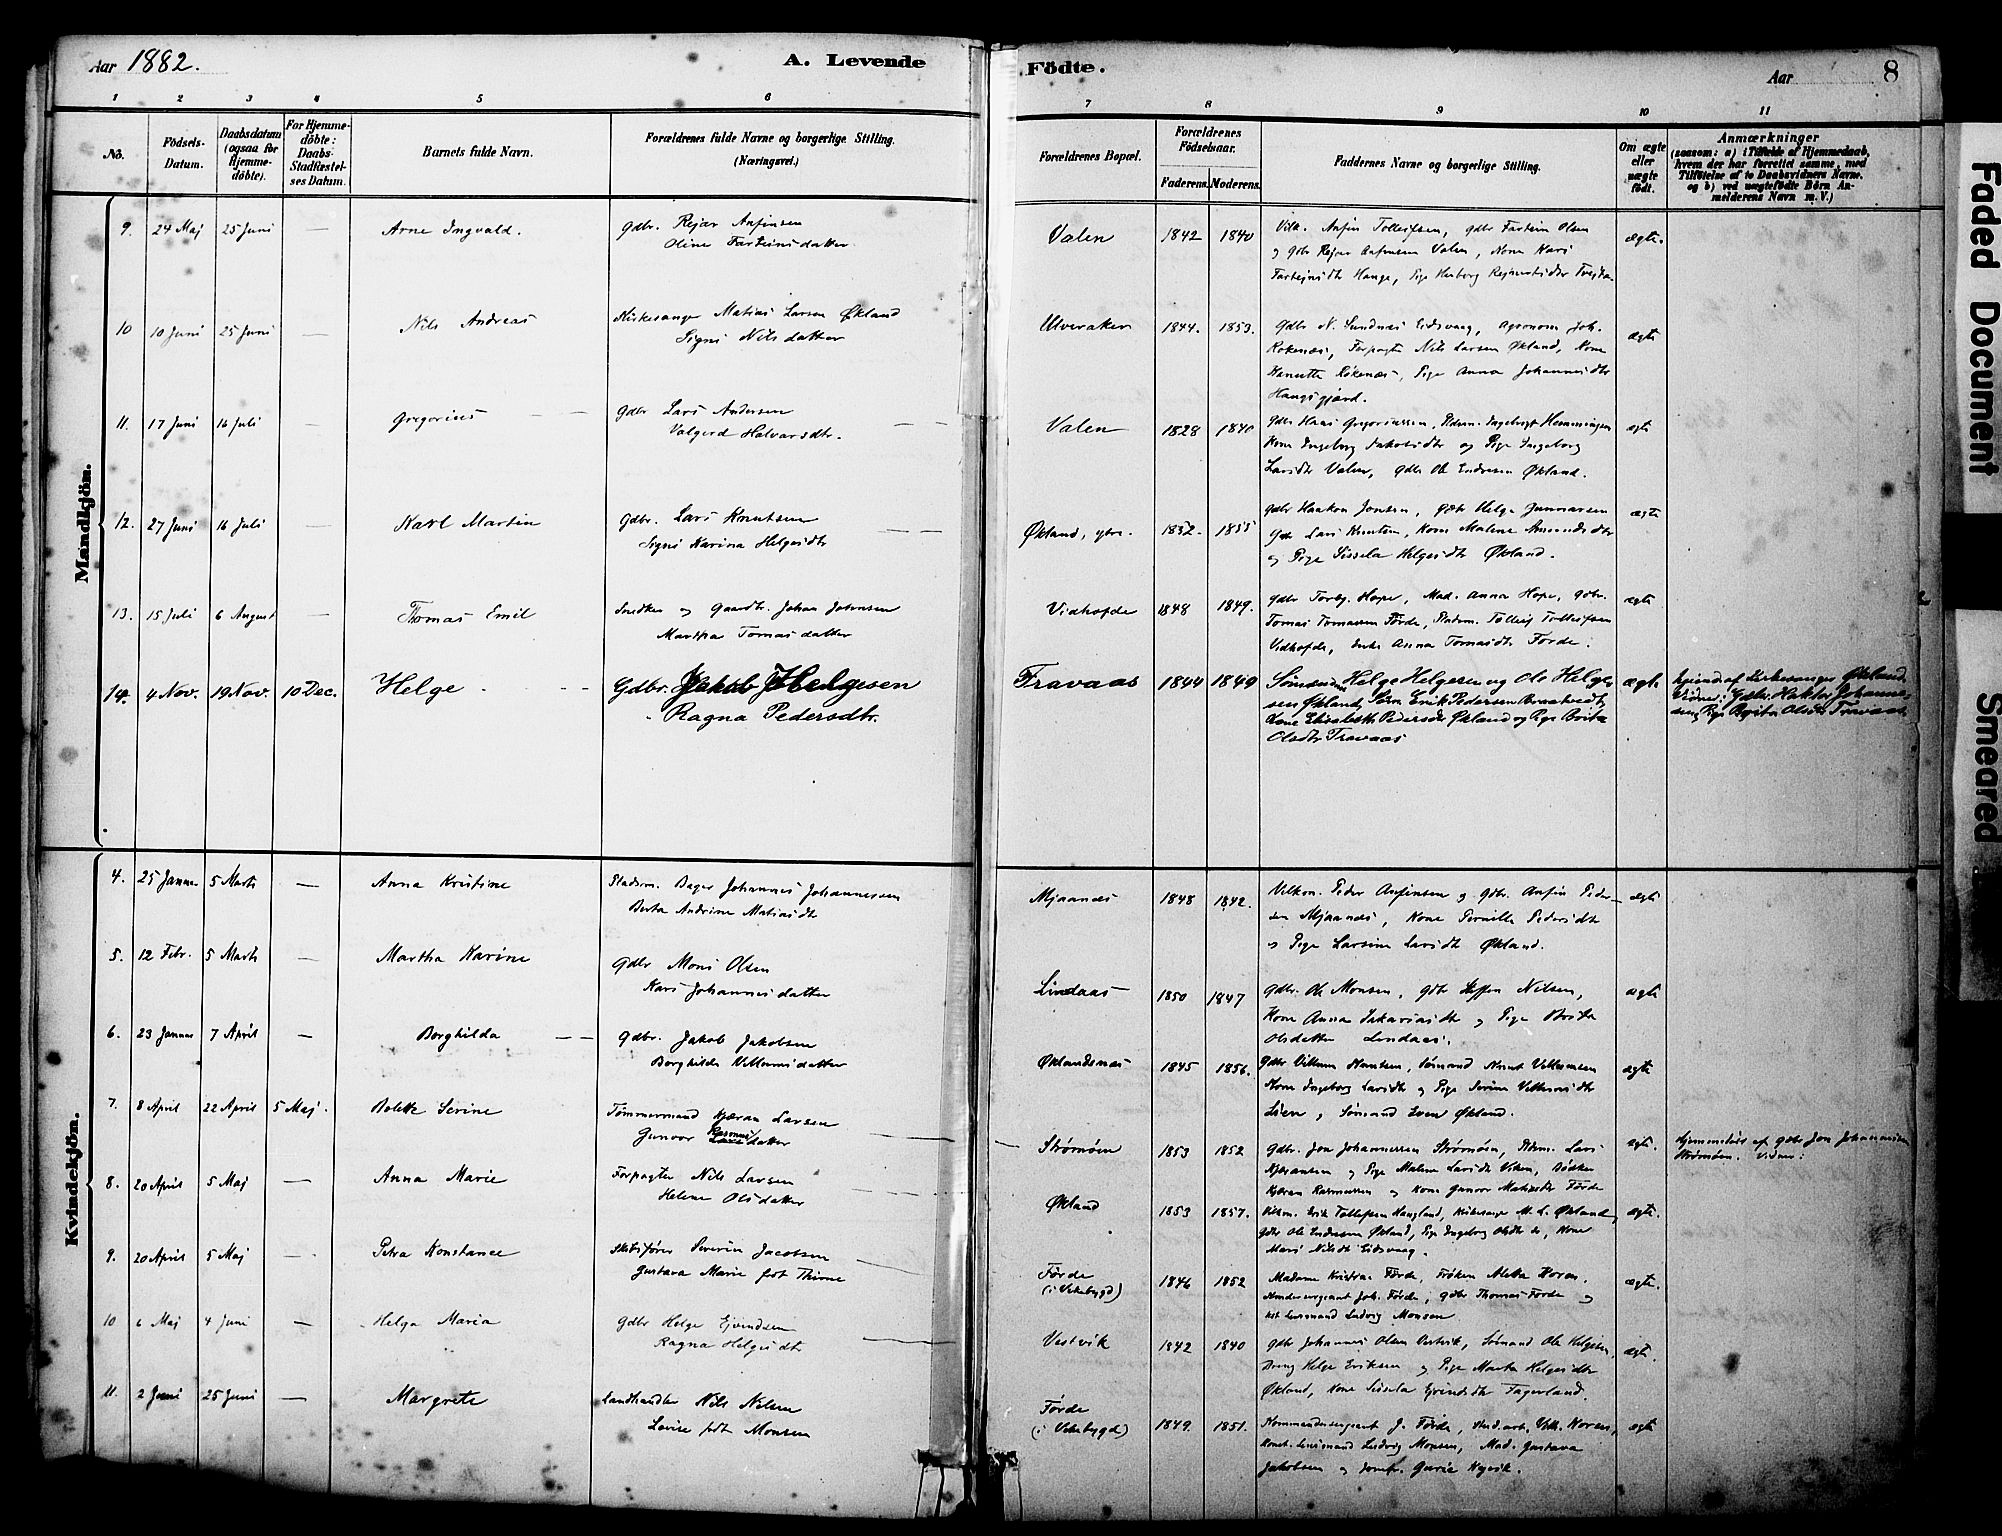 Aar 1882.
A. Levende
Födte.
Aar
8
1 2 3 4 5 6 7 8 9 10 11
No.
Födsels-Datum.
Daabsdatum (ogsaa for Hjemme-döbte).
For Hjemme-döbte: Daabs-Stadfæstelses Datum.
Barnets fulde Navn.
Forældrenes fulde Navne og borgerlige Stilling. (Næringsvei.)
Forældrenes Bopæl.
Forældrenes Födselsaar.
Faderens. Moderens.
Faddernes Navne og borgerlige Stilling.
Om ægte eller uægte födt.
Anmærkninger
(saasom: a) i Tilfælde af Hjemmedaab, hvem der har forrettet samme, med Tilföielse af to Daabsvidners Navne. og b) ved uægtefödte Börn Anmelderens Navn m. V.)
Mandkjön.
9. 24 Maj 25 Juni — Arne Ingvald. Gdbr. Rejar Anfinsen
Oline Farteinsdatter.
Valen 1842 1840
og Gdbr Rejar Anfinsen Valen, Kone Kari
ægte.
10 10 Juni 25 Juni — Nils Andreas Kirkesanger Matias Larsen Økland
Signi Nilsdatter
Ulveraker 1844. 1853. Gdbr N. Sundnes Eidsvaag, Agronom Joh.
Rökenæs, Forpagter Nils Larsen Økland, Kone
Hanette Rökenæs, Pige Anna Johannesdtr
Haugsgjerd.
ægte
11. 17 Juni 16 Juli — Gregorius Gdbr Lars Andersen
Valgerd Halvarsdtr.
Valen 1828 1840 Gdbr Haas Gregoriussen,
Kone Ingeborg Jakobsdtr og Pige Ingeborg
Larsdtr Valen, Gdbr Ole Endresen Økland.
ægte
12. 27 Juni 16 Juli — Karl Martin Gdbr. Lars Knutsen
Signi Karina Helgesdtr
Økland, ytre. 1832. 1855 Gdbr Haakon Jonsen, Gdbr Helge Gunnarsen
Gdbr Lars Knutsen, Kone Malene Amundsdtr
og Pige Sissela Helgesdtr Økland.
ægte
13. 15 Juli 6 August — Thomas Emil Snedker og Gaardbr. Johan Johnsen
Martha Tomasdatter
Vidhofde 1848 1849. Gdbr Torbj. Hope, Mad. Anna Hope, Gdbr.
Tomas Tomassen Förde, Pladsm. Tolleif Tolleifsen
Vidhofde, Enke Anna Tomasdtr Förde.
ægte
14. 4 Nov. 19 Nov. 10 Dec. Helge Gdbr. Jakob Helgesen
Ragna Pedersdtr.
Travaas 1844 1849 Sömænd Helge Helgesen og Ole Helge-
sen Økland, Erik Pedersen
Kone Elisabeth Pedersdtr Økland og Pige Brita
Olsdtr Travaas
ægte
Hjemd. af Kirkesanger Økland.
Vidner: Gdbr. Haktor Johanne-
sen, Pige Brita Olsdtr Travaas
Kvindekjön.
4. 25 Januar 5 Marts — Anna Kristine Pladsm. Bager Johannes Johannessen
Berta Andrine Matiasdtr
Mjaanes 1848 1842. Peder Anfinsen og Gdbr. Anfin Peder-
sen Mjaanes, Kone Pernille Pedersdtr
og Pige Larsine Larsdtr Økland.
ægte
5. 12 Febr. 5 Marts — Martha Karine Gdbr Mons Olsen
Kari Johannesdatter
Lindaas 1850 1847 Gdbr. Ole Monsen, Gdbr Steffen Nilsen,
Kone Anna Sakariasdtr og Pige Brita
Olsdatter Lindaas.
ægte
6. 23 Januar 7 April — Borghilda Gdbr. Jakob Jakobsen
Borghilda Villumsdatter
Øklandsnæs 1845 1856. Gdbr Villum Knutsen, Sømand Knut Villumsen
Kone Ingeborg Larsdtr og Pige Serine Villumsdtr
Lien, Sømand Even Økland.
ægte
7. 8 April 22 April 5 Maj. Bolette Serine Tömmermand Kjæran Larsen
Gunvor Rasmusdatter
Strømøen 1853 1852 Gdbr. Jon Johannessen Strømøen, Lars
Kjæransen og Pige Malene Larsdtr Viken, Bödker
Kjæran Rasmussen og Kone Gunvor Matiasdtr Förde
ægte.
Hjemmedöbt af Gdbr Jon Johannesen
Strømøen. Vidner:
8. 20 April 5 Maj — Anna Marie Forpagter Nils Larsen
Helene Olsdatter
Økland 1853 1857. Erik Tollefsen Haugland, Kirkesanger M. L. Økland,
Gdbr Ole Endresen Økland, Pige Ingeborg Olsdtr, Kone
Mari Nilsdtr Eidsvaag.
ægte.
9. 20 April 5 Maj — Petra Konstance Skibsfører Severin Jacobsen
Gustava Marie født Thime
Förde
(i Vikebygd) 1846 1852 Madame Kristine Förde, Fröken Aletta Koren.
Joh. Förde, Gdbr Thomas Förde og
Lensmand Ludvig Monsen
ægte.
10 6 Maj 4 Juni — Helga Maria Gdbr Helge Ejvindsen
Ragna Helgesdtr
Vestvik 1842 1840 Gdbr Johannes Olsen Vestvik, Sømand Ole Helgesen,
Dreng Helge Eriksen og Pige Marta Helgesdtr
Økland, Kone Sissela Ejvindsdtr Fagerland.
ægte.
11. 2 Juni 25 Juni — Margrete Landhandler Nils Nilsen
Lovise født Monsen
Förde
(i Vikebygd) 1849. 1851. Kommandersergeant J. Förde, Vilh. Koren,
Konst. Lensmand Ludvig Monsen, Mad. Gustava
Jakobsen og Jomfr. Gurie Nyvik.
ægte
Faded Document
Smeared